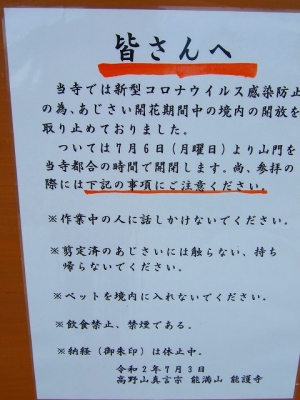 皆さんへ
当寺では新型コロナウイルス感染防止
の為、あじさい開花期間中の境内の開放を
取り止めておりました。
ついては7月6日(月曜日)より山門を
当寺都合の時間で開閉します。尚、参拝の
際には下記の事項にご注意ください。
※作業中の人に話しかけないでください。
※剪定済のあじさいには触らない、持ち
帰らないでください。
※ペットを境内に入れないでください。
※飲食禁止、禁煙である。
※納経(御朱印)は休止中。
令和2年7月3日
高野山真言宗 能満山 能護寺